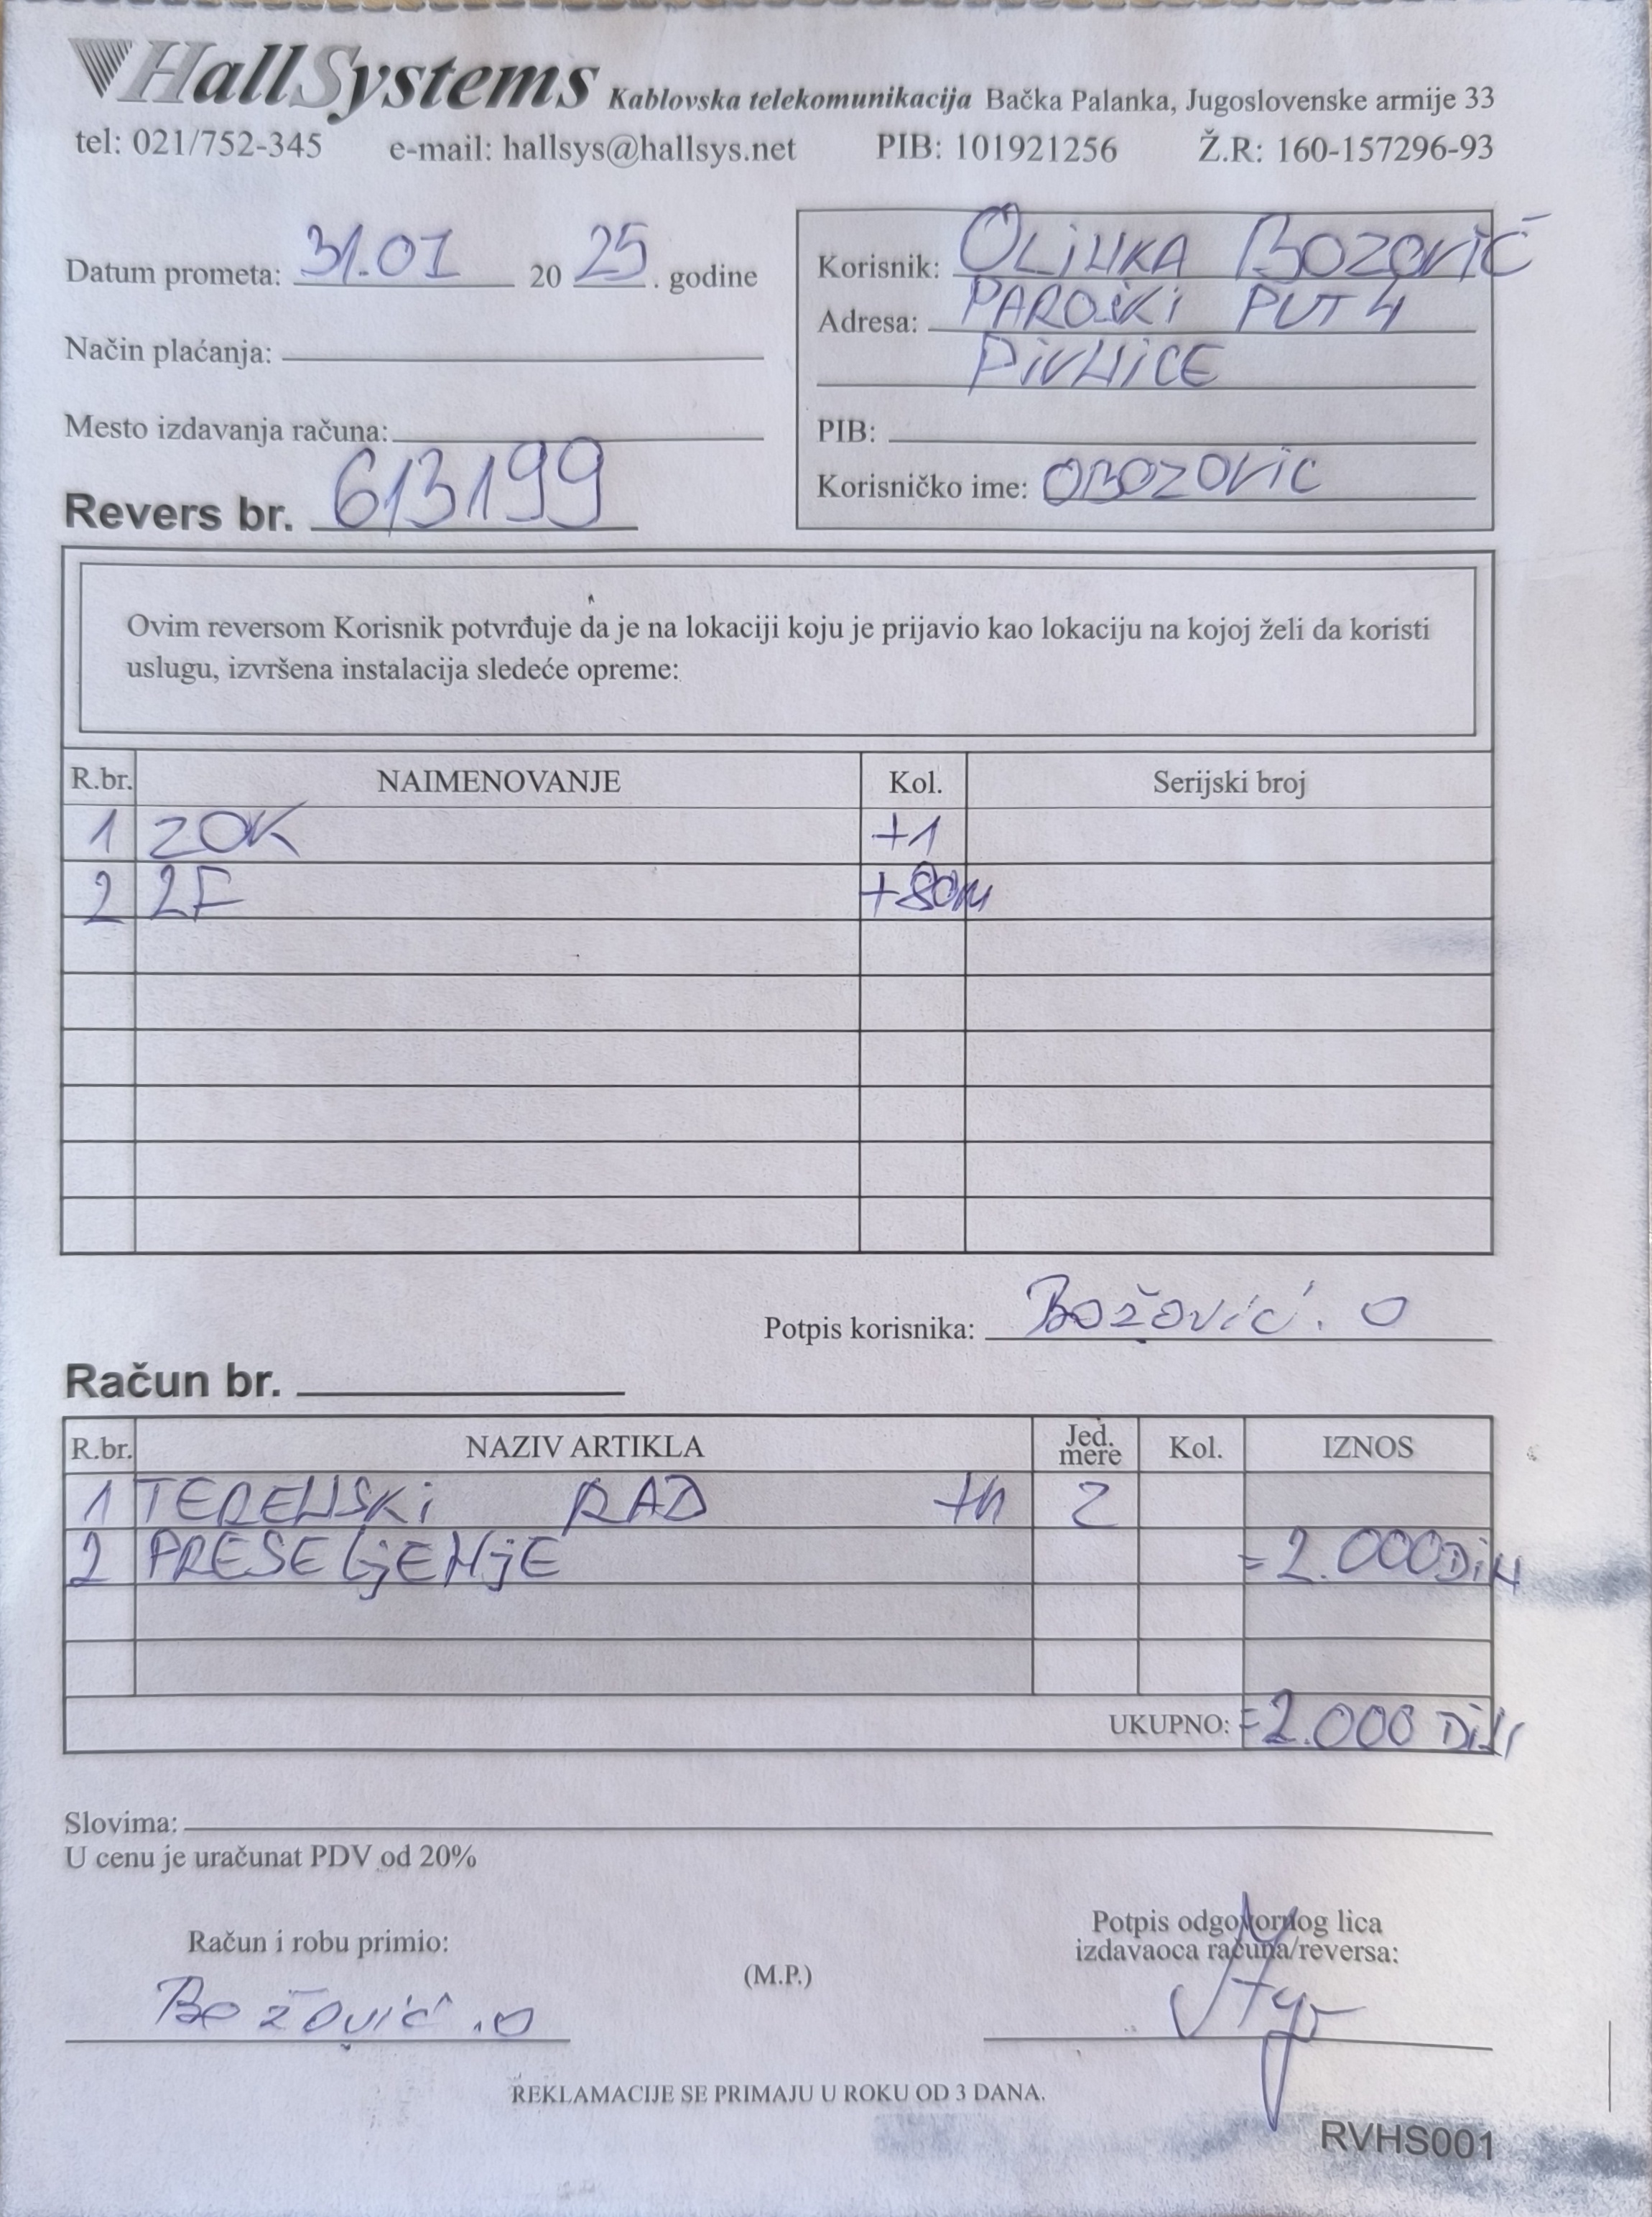 HallSystems Kablovska telekomunikacija Bačka Palanka, Jugoslovenske armije 33
tel: 021/752-345 e-mail: hallsys@hallsys.net PIB: 101921256 Ž.R: 160-157296-93
Datum prometa: 31.01 20 25 . godine
Način plaćanja:
Mesto izdavanja računa:
Revers br. 613199
Korisnik: OLiNKA BOZOVIĆ
Adresa: PAROŠKi PUT 4
PiVNiCE
PIB:
Korisničko ime: OBOZOVIC
Ovim reversom Korisnik potvrđuje da je na lokaciji koju je prijavio kao lokaciju na kojoj želi da koristi
uslugu, izvršena instalacija sledeće opreme:
R.br. NAIMENOVANJE Kol. Serijski broj
1 ZOK +1
2 2F +80m
Potpis korisnika: Božović. O
Račun br.
R.br. NAZIV ARTIKLA Jed. mere Kol. IZNOS
1 TERENSKi RAD 2
2 PRESELjENjE =2.000DiN
UKUPNO: =2.000 DiN
Slovima:
U cenu je uračunat PDV od 20%
Račun i robu primio:
Božović .O
(M.P.)
Potpis odgovornog lica
izdavaoca računa/reversa:
REKLAMACIJE SE PRIMAJU U ROKU OD 3 DANA.
RVHS001